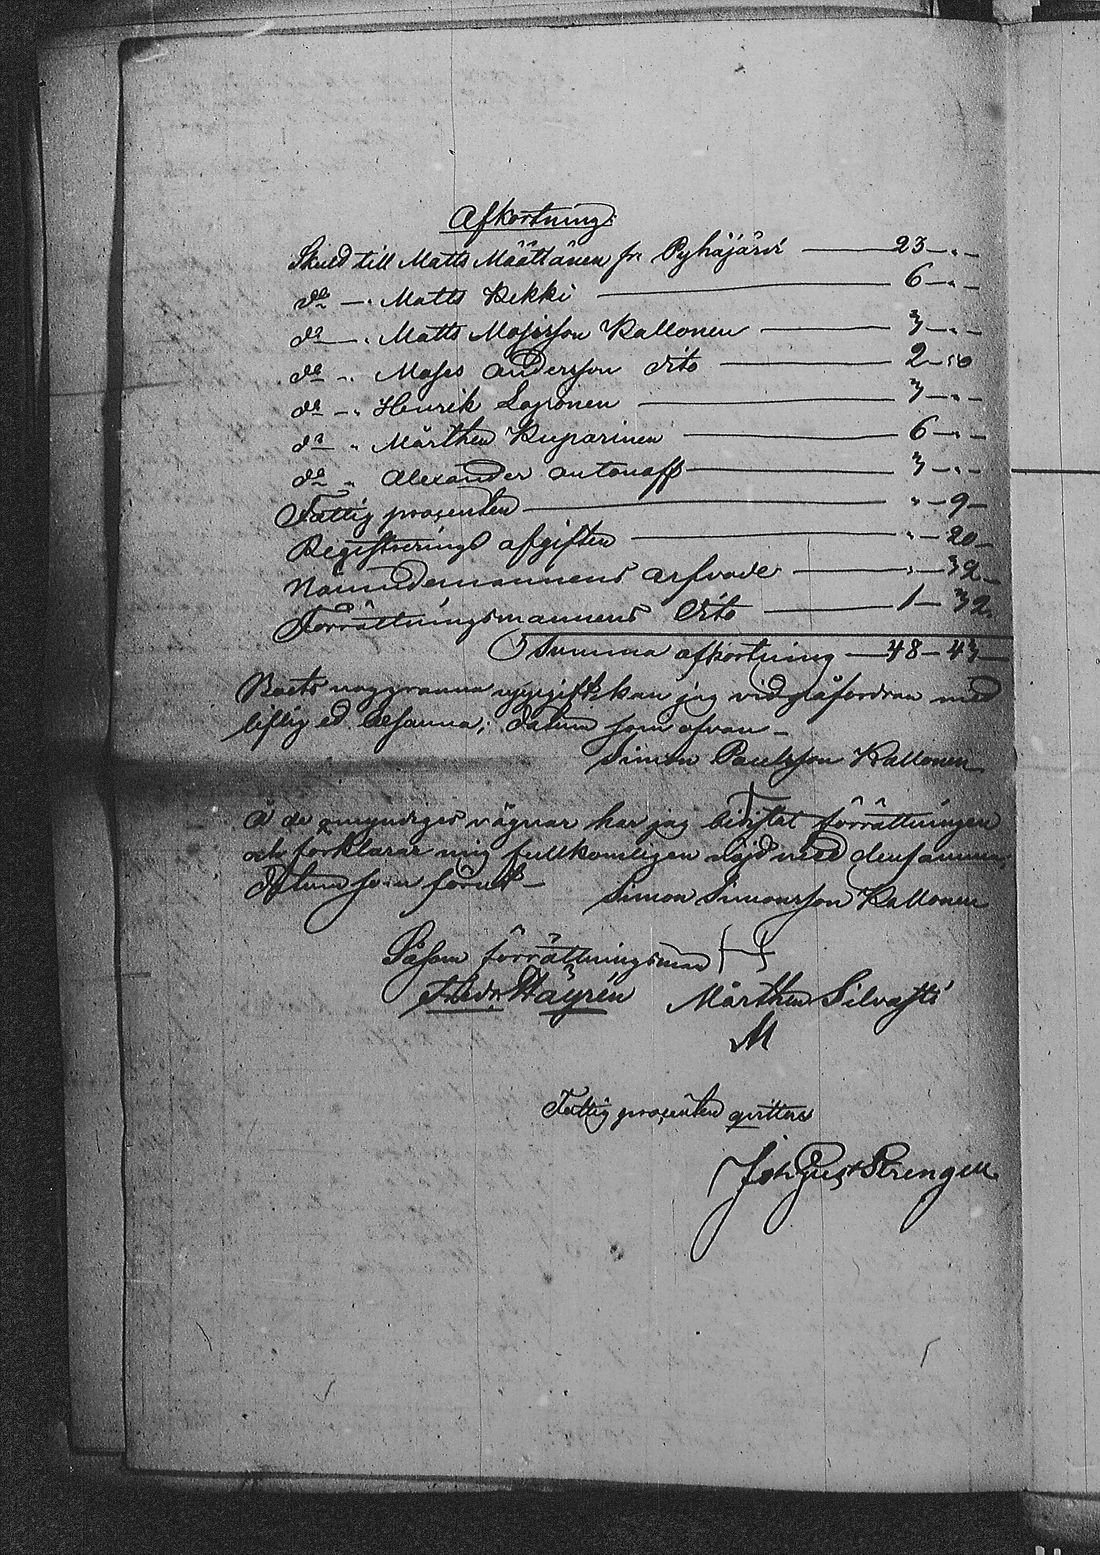 Afkortning:
Skuld till Matts Määttänen fr. Pyhäjärvi — 23 — „ —
do — „ Matts Kekki — 6 — „ —
do — „ Matts Mosisson Kallonen — 3 — „ —
do — „ Moses Andersson dito — 2 — 50
do — „ Henrik Loponen — 3 — „ —
do „ Mårthen Kuparinen — 6 — „ —
do „ Alexander Antonoff — 3 — „ —
Fattig procenten — „ — 9 —
Registrerings afgiften — „ — 20 —
Nämndemannens arfvode — „ — 32 —
Förrättningsmannens dito — 1 — 32
Summa afkortning — 48 — 43 —
Boets noggranna uppgift kan jag vid påfordran med
liflig ed besanna; datum som ofvan —
Simon Paulsson Kallonen
Å de omyndiges vägnar har jag bivistat förrättningen
och förklarar mig fullkomligen nöjd med densamma,
datum som förut —
Simon Simonsson Kallonen
Såsom förrättningsman
Fredr. Häyrén Mårthen Silvasti
M
Fattig procenten qvitteras
Joh Gust Strengell